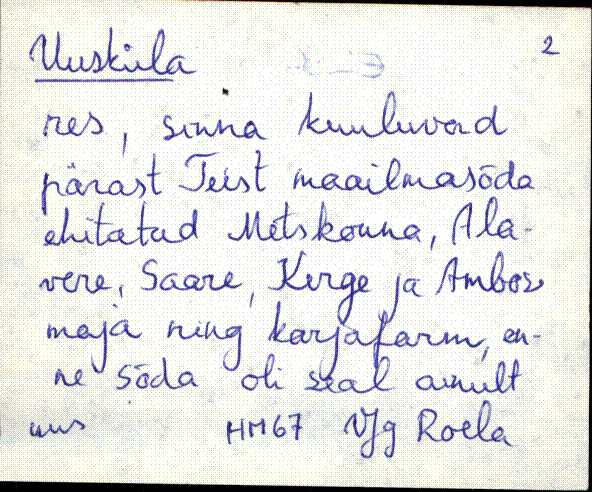 Uusküla 2
res, sinna kuuluvad
pärast Teist maailmasõda
ehitatud Metskonna, Ala-
vere, Saare, Kerge ja Ambos
maja ning karjafarm, en-
ne sõda oli seal ainult
uus HM67 VJg Roela